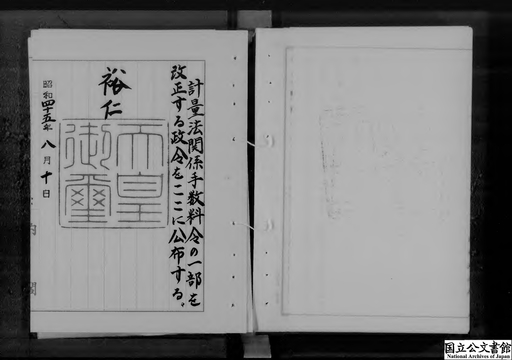 計量法関係手数料令の一部を
改正する政令をここに公布する。
裕仁
天皇
御璽
昭和四十五年八月十日
内閣
国立公文書館
National Archives of Japan